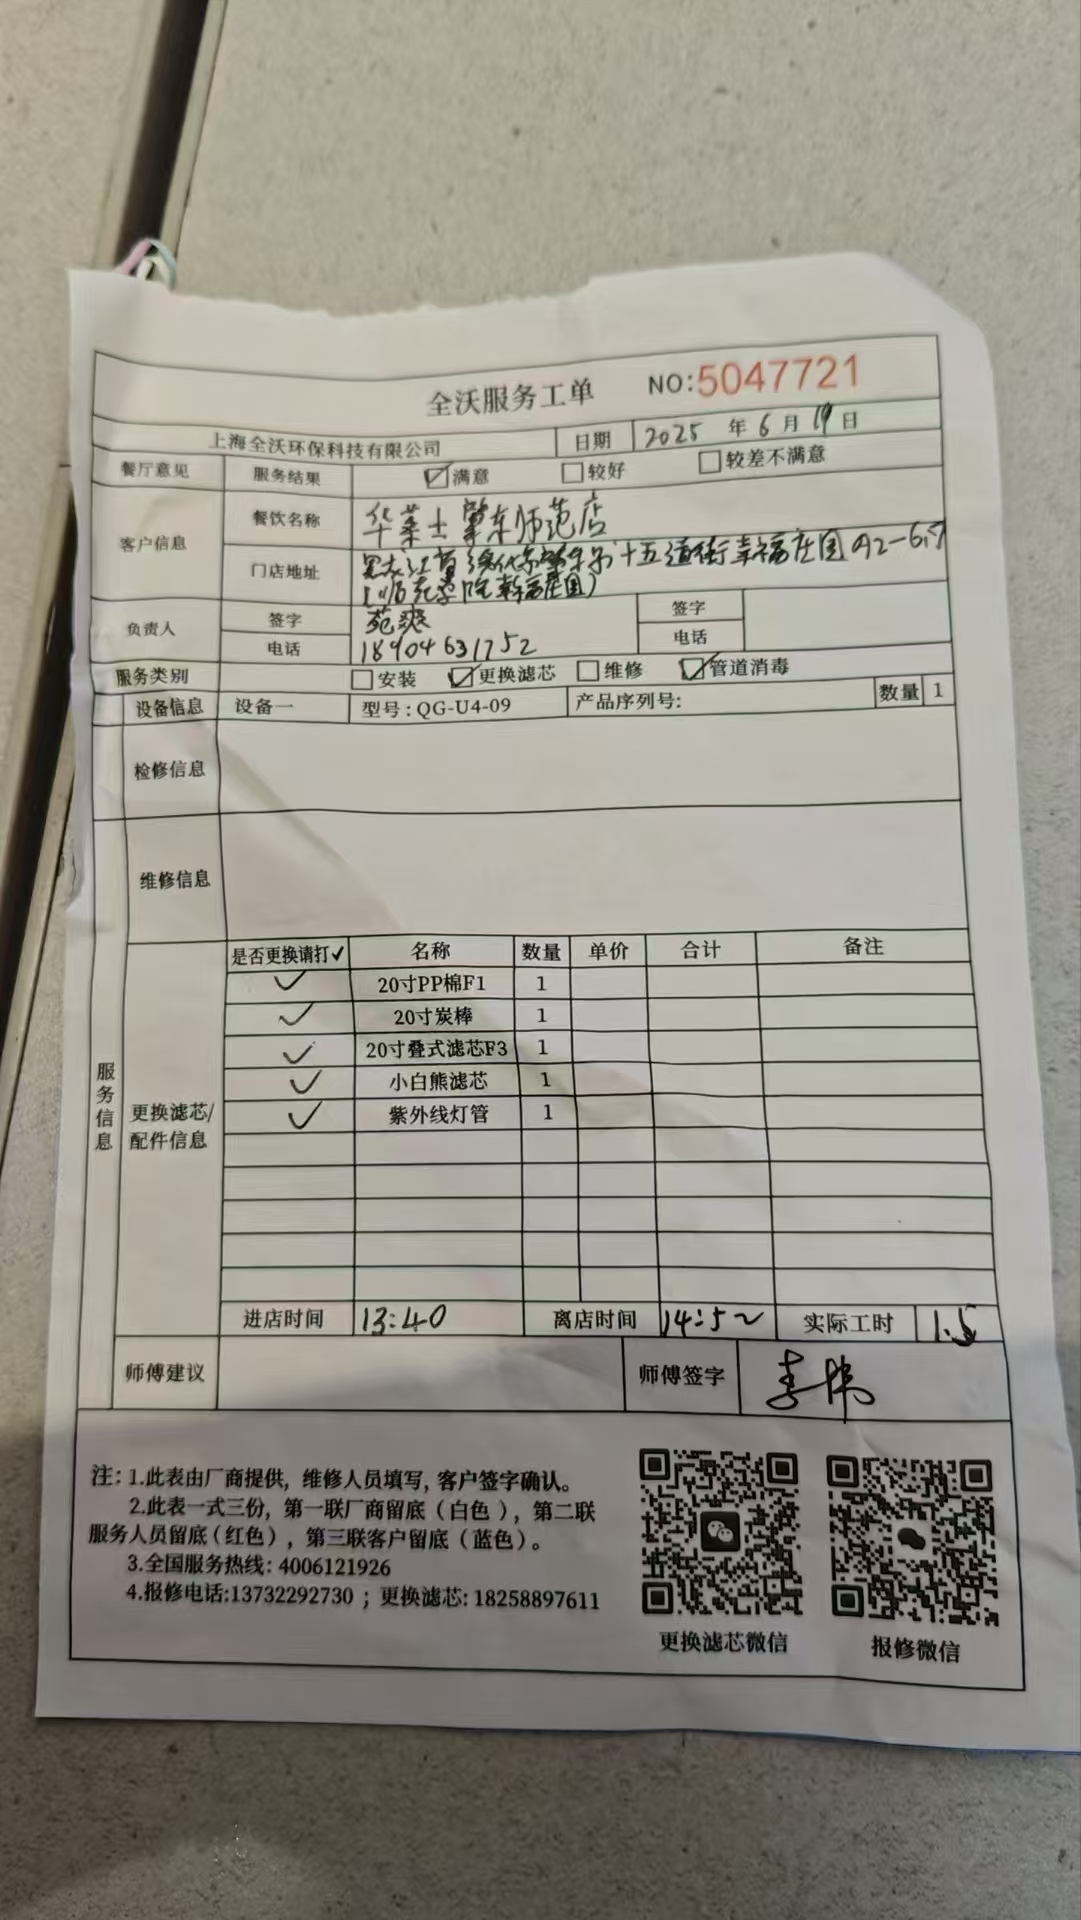 全沃服务工单 NO:5047721
上海全沃环保科技有限公司 日期 2025 年 6 月 19 日
餐厅意见 服务结果 ☑满意 □较好 □较差不满意
客户信息 餐饮名称 华莱士肇东师范店
门店地址 黑龙江省绥化市肇东市十五道街幸福庄园
(师范学院幸福庄园)
负责人 签字 苑爽 签字
电话 18904631752 电话
服务类别 □安装 ☑更换滤芯 □维修 ☑管道消毒
设备信息 设备一 型号:QG-U4-09 产品序列号: 数量 1
检修信息
维修信息
服务信息
更换滤芯/
配件信息
是否更换请打✓ 名称 数量 单价 合计 备注
✓ 20寸PP棉F1 1
✓ 20寸炭棒 1
✓ 20寸叠式滤芯F3 1
✓ 小白熊滤芯 1
✓ 紫外线灯管 1
进店时间 13:40 离店时间 14:52 实际工时 1.5
师傅建议 师傅签字 李伟
注: 1.此表由厂商提供, 维修人员填写, 客户签字确认。
2.此表一式三份, 第一联厂商留底（白色）, 第二联
服务人员留底（红色）, 第三联客户留底（蓝色）。
3.全国服务热线: 4006121926
4.报修电话:13732292730 ; 更换滤芯: 18258897611
更换滤芯微信 报修微信